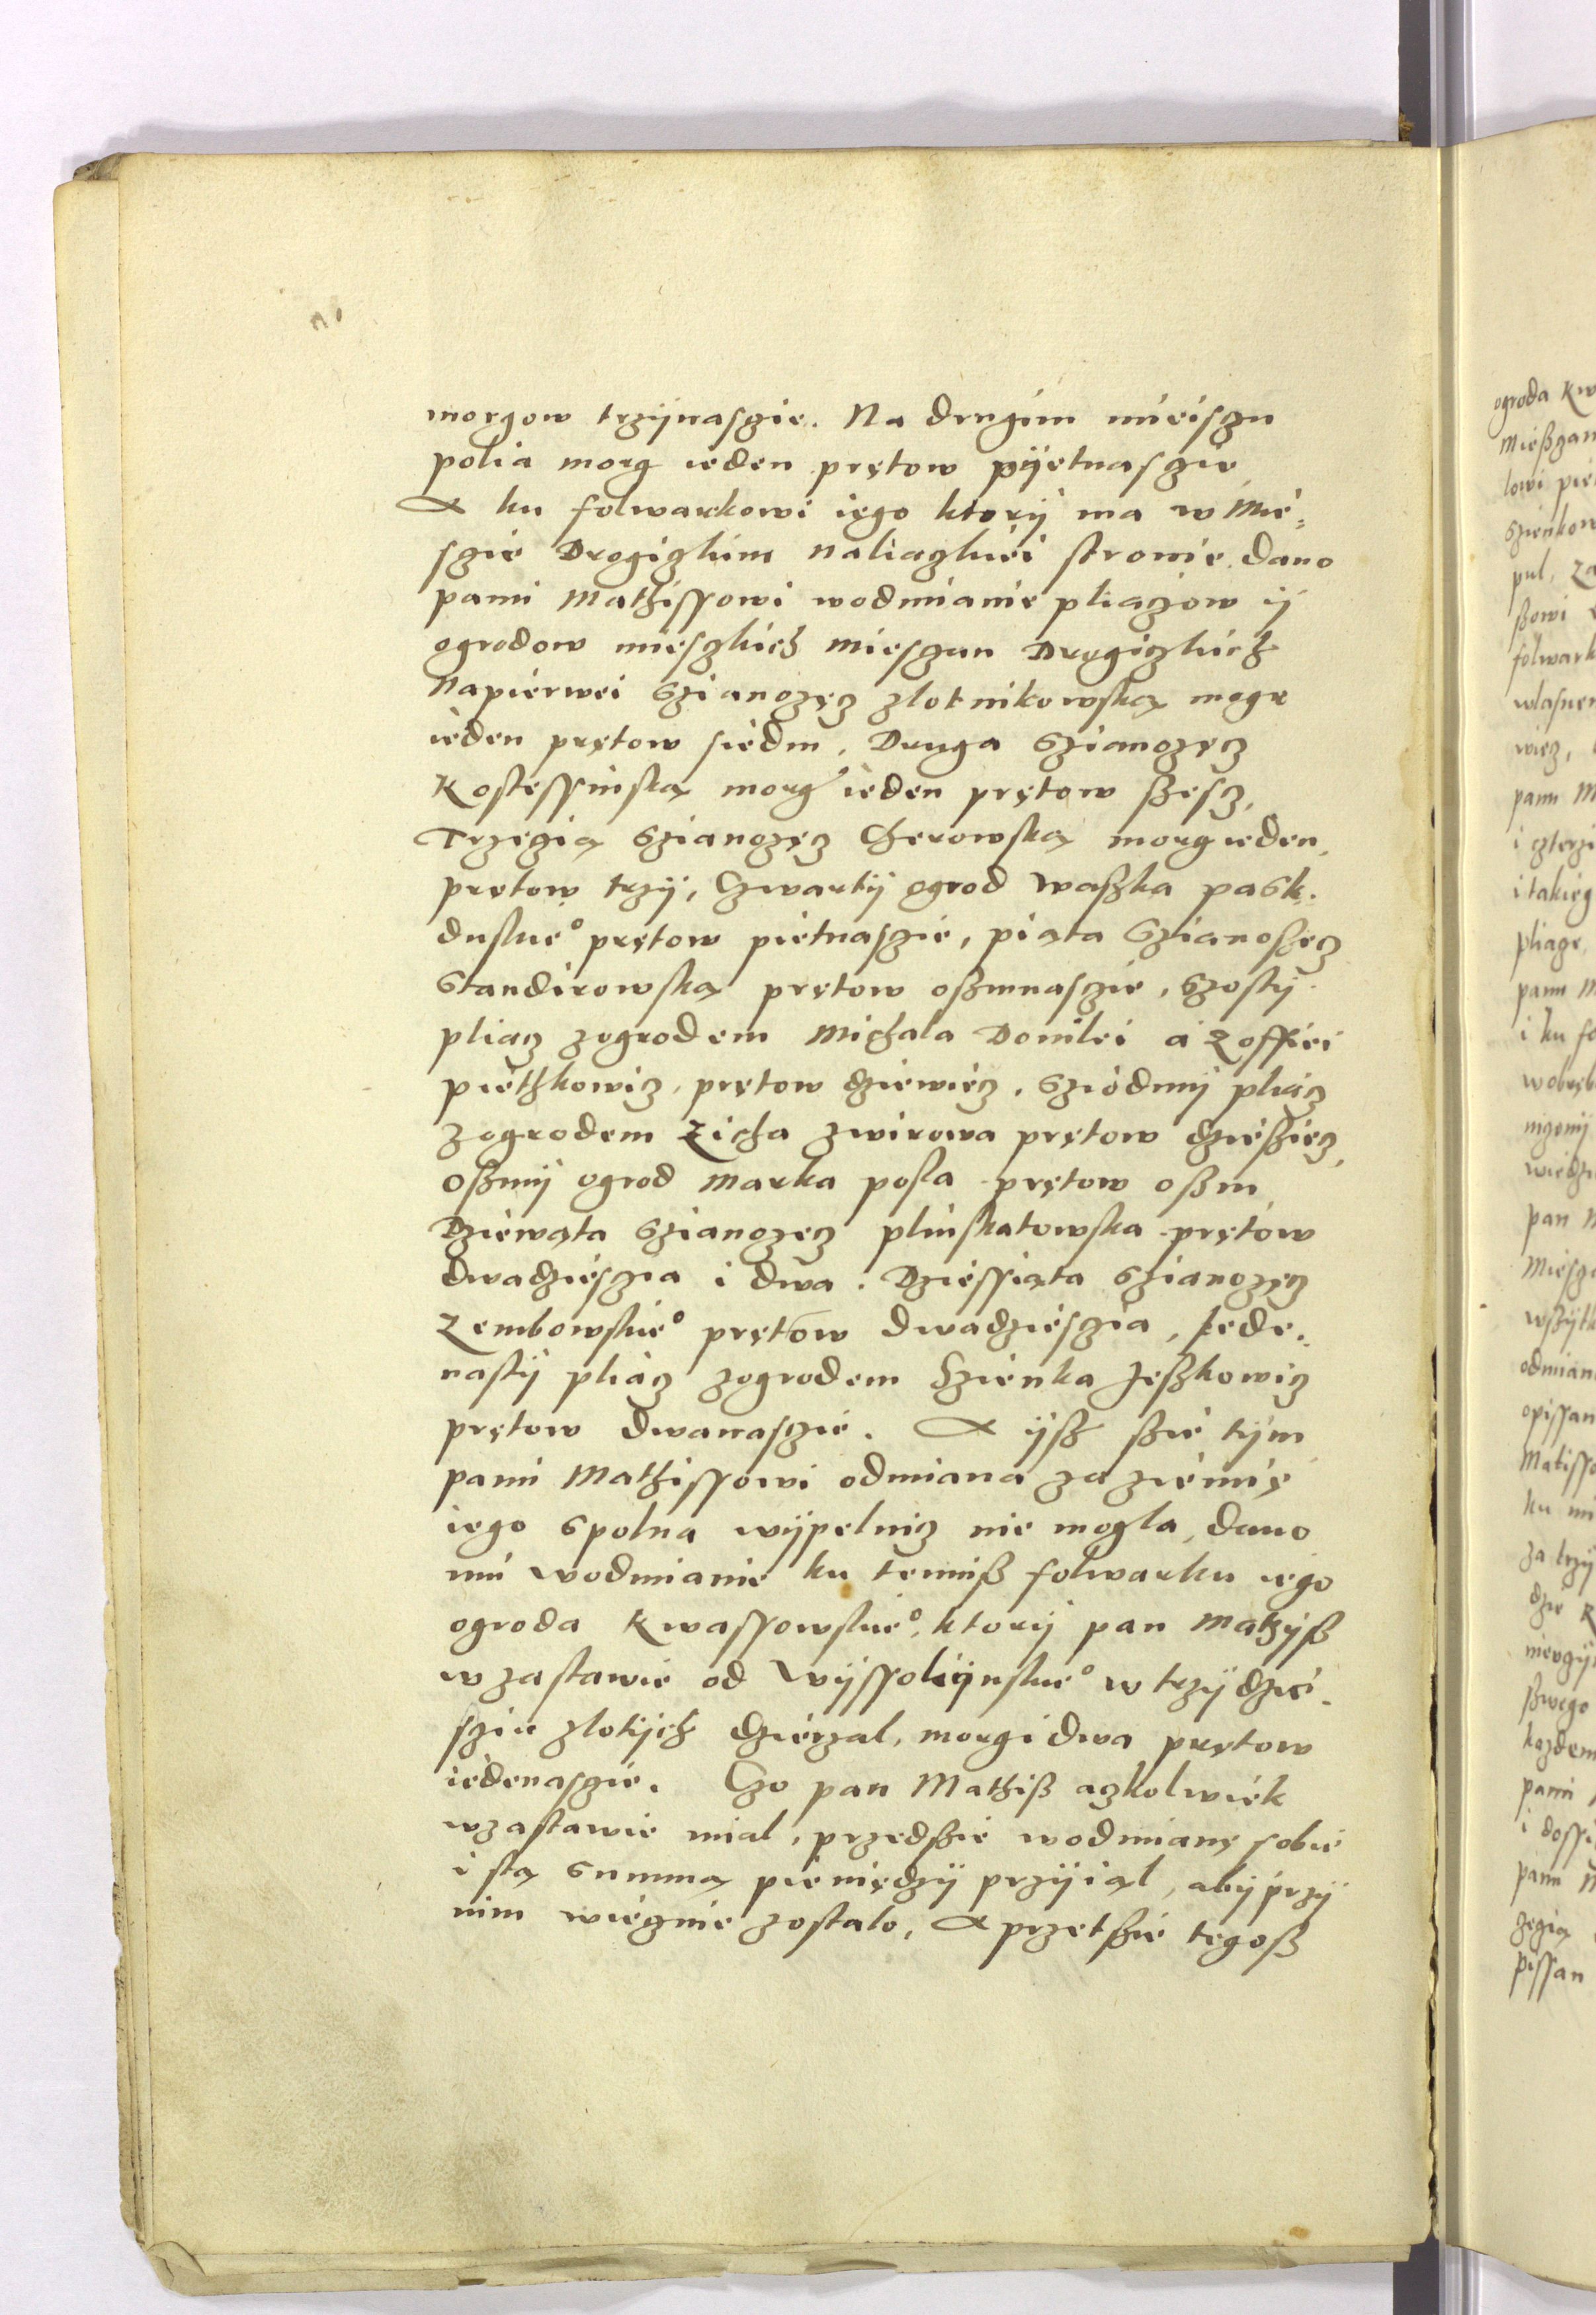 morgow trzÿnasczie. Na drugim mieisczu
polia morg ieden prętow pÿetnasczie
A ku folwarkowi iego ktorÿ ma w Mie¬
sczie Drogiczkim naliaczkiei stronie. dano
panu Mathissowi wodmianie pliaczow ÿ
ogrodow mieszkich mieszan Drogiczkich
Napierwei Szianozęcz zlotnikowską mogr
ieden prętow siedm. Druga Szianozęcz
Kostessinską morg ieden prętow szescz,
Trzeczią Szianozęcz Cherowska morg ieden,
prętow trzÿ, Czwartÿ ogrod Waszka pask.
duskie° prętow pietnasczie, piąta Szianoszęcz
Standirowską prętow oszmnasczie, Szostÿ
pliacz zogrodem Michala Domilei a Zoffiei
piethkowicz, prętow dziewiecz. Sziódmÿ pliacz
zogrodem Zicha zwirowa prętow dziesziecz,
Oszmÿ ogrod Marka posla prętow oszm
Dziewąta Szianozęcz pluskatowska prętow
dwadziesczia i dwa. Dziessiąta Szianozęcz
Zembowskie° prętow dwadziesczia, Iede¬
nastÿ pliacz zogrodem Szienka Jeszkowicz
prętow dwanasczie. A ÿsz szie tÿm
panu Mathissowi odmiana za ziemię
iego spolna wÿpelnicz nie mogla, dano
mu wodmianie ku temusz folwarku iego
ogroda Kwassowskie°, ktorÿ pan Mathÿsz
w zastawie od Wÿssokÿnskie° w trzÿdzie¬
sziu zlotÿch dzierzal, morgi dwa prętow
iedenasczie. Czo pan Mathisz aczkolwiek
wzastawie mial, przedszie wodmianę sobie
i stą summą pieniędzÿ przÿiąl, abÿ przÿ
nim wiecznie zostalo, A przetszie tegosz
ogroda